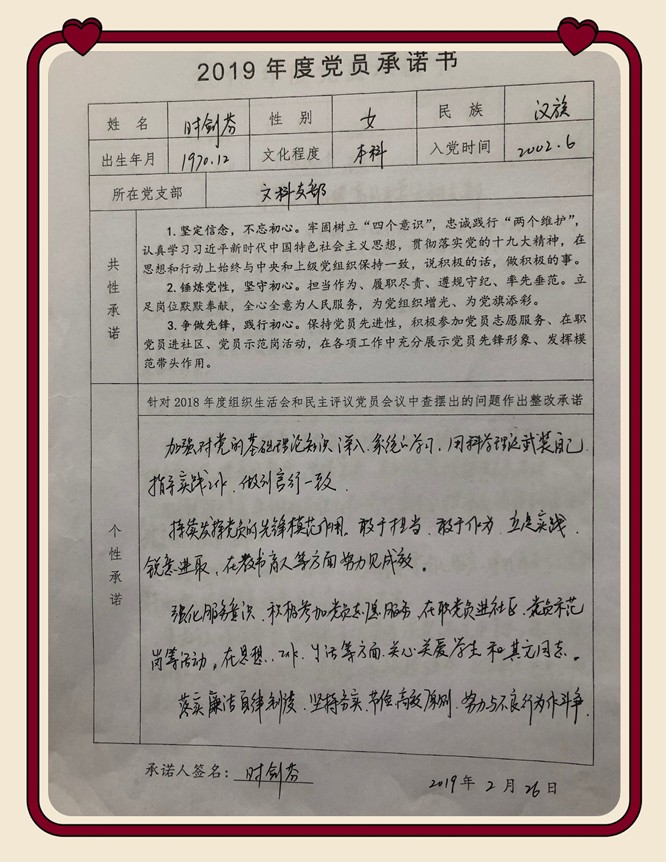 2019年度党员承诺书
姓 名 时剑芬 性 别 女 民 族 汉族
出生年月 1970.12 文化程度 本科 入党时间 2002.6
所在党支部 文科支部
共性承诺
1.坚定信念，不忘初心。牢固树立“四个意识”，忠诚践行“两个维护”，
认真学习习近平新时代中国特色社会主义思想，贯彻落实党的十九大精神，在
思想和行动上始终与中央和上级党组织保持一致，说积极的话，做积极的事。
2.锤炼党性，坚守初心。担当作为、履职尽责、遵规守纪、率先垂范。立
足岗位默默奉献，全心全意为人民服务，为党组织增光、为党旗添彩。
3.争做先锋，践行初心。保持党员先进性，积极参加党员志愿服务、在职
党员进社区、党员示范岗活动，在各项工作中充分展示党员先锋形象、发挥模
范带头作用。
个性承诺
针对2018年度组织生活会和民主评议党员会议中查摆出的问题作出整改承诺
加强对党的基础理论知识深入.系统的学习，用科学理论武装自己
指导实践工作，做到言行一致.
持续发挥党员的先锋模范作用。敢于担当、敢于作为，立足实践.
锐意进取，在教书育人等方面努力见成效。
强化服务意识，积极参加党员志愿服务，在职党员进社区、党员示范
岗等活动，在思想、工作、生活等方面，关心关爱学生和其它同志。
落实廉洁自律制度，坚持务实、节俭、高效原则，努力与不良行为作斗争.
承诺人签名：时剑芬
2019年2月26日